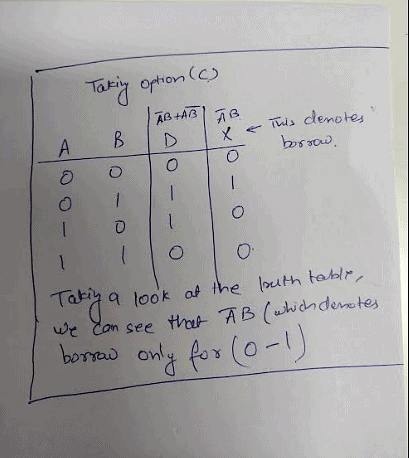 Taking option (C)
A B A̅B+AB̅ D A̅B X ← This denotes borrow.
0 0 0 0
0 1 1 1
1 0 1 0
1 1 0 0.
Taking a look at the truth table,
we can see that A̅B (which denotes
borrow only for (0-1)